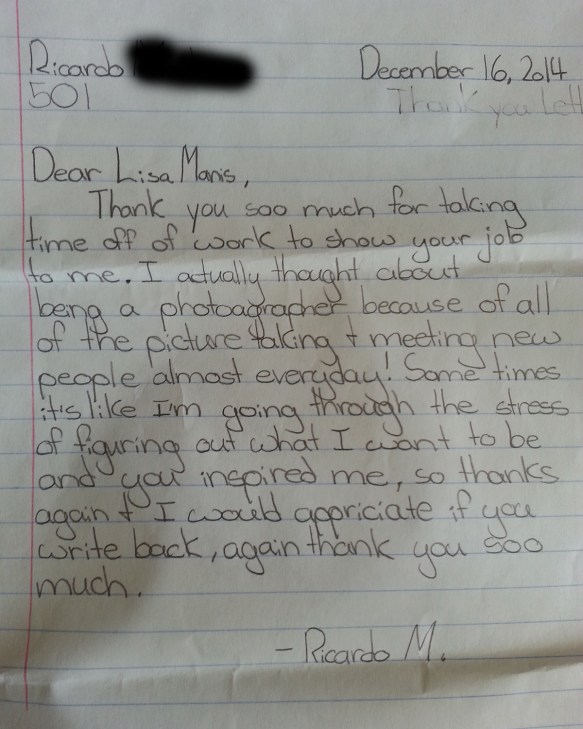 Ricardo
December 16, 2014
501
Thank you Lett
Dear Lisa Manis,
Thank you soo much for taking
time off of work to show your job
to me. I actually thought about
being a photoagrapher because of all
of the picture taking + meeting new
people almost everyday! Some times
it's like I'm going through the stress
of figuring out what I want to be
and you inspired me, so thanks
again + I would appriciate if you
write back, again thank you soo
much.
- Ricardo M.